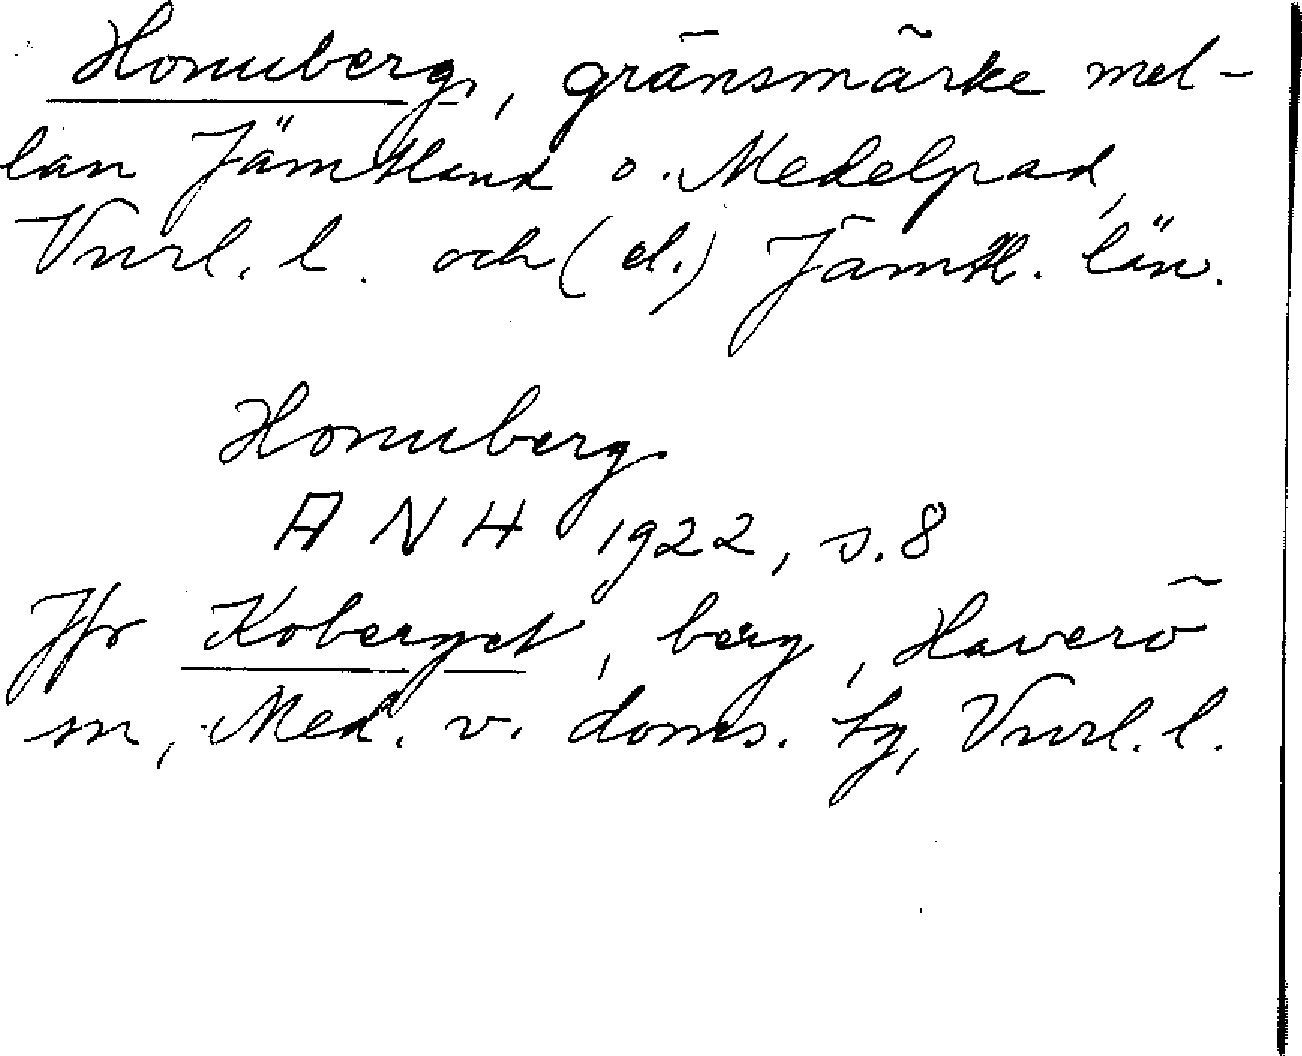 Honuberg, gränsmärke mel-
lan Jämtland o. Medelpad,
Vnrl. l. och (el.) Jämtl. län.
Honuberg
A N H 1922, s. 8
Jfr Koberget, berg, Haverö
sn, Med. v. doms. tg, Vnrl. l.